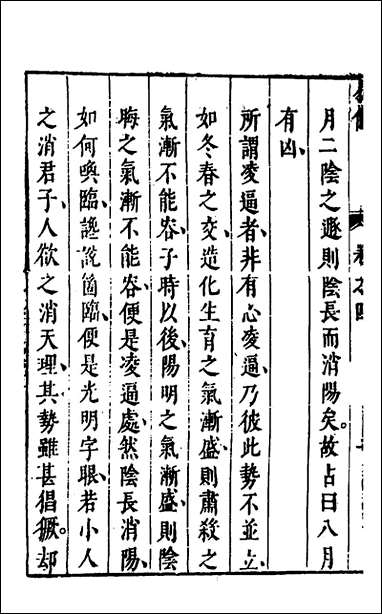 月二陰之遯則陰長而消陽矣。故占曰八月
有凶、
所謂凌逼者、非有心凌逼、乃彼此勢不並立、
如冬春之交、造化生育之氣漸盛、則肅殺之
氣漸不能容、子時以後、陽明之氣漸盛、則陰
晦之氣漸不能容、便是凌逼處、然陰長消陽、
如何喚臨、讒說箇臨、便是光明字眼、若小人
之消君子、人欲之消天理、其勢雖甚倡獗。却